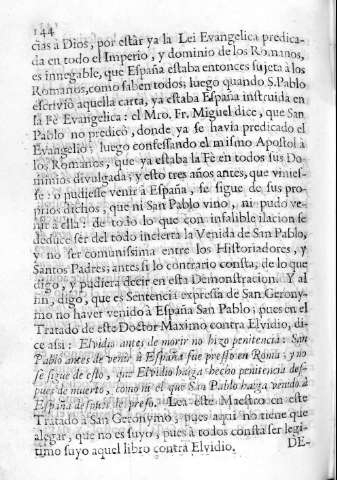 144
cias à Dios, por estàr ya la Lei Evangelica predica-
da en todo el Imperio, y dominio de los Romanos,
es innegable, que España estaba entonces sujeta à los
Romanos, como saben todos; luego quando S. Pablo
escriviò aquella carta, ya estaba España instruida en
la Fè Evangelica: el Mro. Fr. Miguel dice, que San
Pablo no predicò, donde ya se havia predicado el
Evangelio; luego confessando el mismo Apostol à
los Romanos, que ya estaba la Fè en todos sus Do-
minios divulgada; y esto tres años antes, que vinies-
se: o pudiesse venir à España, se sigue de sus pro-
prios dichos, que ni San Pablo vino, ni pudo ve-
nir à ella: de todo lo que con infalible ilacion se
deduce sèr del todo incierta la Venida de San Pablo,
y no ser comunissima entre los Historiadores, y
Santos Padres; antes si lo contrario consta, de lo que
digo, y pudiera decir en esta Demonstracion. Y al
fin, digo, que es Sentencia expressa de San Gerony-
mo no haver venido à España San Pablo; pues en el
Tratado de este Doctor Maximo contra Elvidio, di-
ce assi: Elvidio antes de morir no hizo penitencia: San
Pablo antes de venir à España fue presso en Roma; y no
se sigue de esto, que Elvidio haiga hecho penitencia des-
pues de muerto, como ni el que San Pablo haiga venido à
España despues de preso. Lea este Maestro en este
Tratado à San Geronymo, pues aqui no tiene que
alegar, que no es suyo, pues à todos consta ser legi-
timo suyo aquel libro contra Elvidio.
DE-